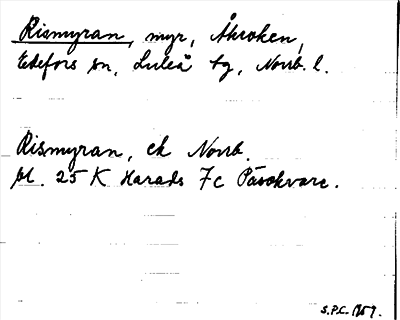 Rismyran, myr, Åkroken,
Edefors sn, Luleå tg, Norrb. l.
Rismyran, ek Norrb.
bl. 25 K Harads 7c Påsokvare.
S.P.C. 1957.